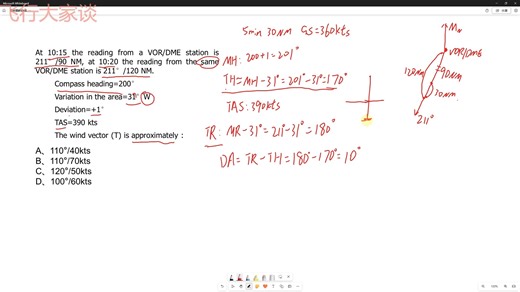 飞行大家谈
At 10:15 the reading from a VOR/DME station is
211°/90 NM, at 10:20 the reading from the same
VOR/DME station is 211° /120 NM.
Compass heading=200°
Variation in the area=31° W
Deviation=+1°
TAS=390 kts
The wind vector (T) is approximately :
A、110°/40kts
B、110°/70kts
C、120°/50kts
D、100°/60kts
5min 30NM GS=360kts
MH: 200+1=201°
TH=MH-31°=201°-31°=170°
TAS: 390kts
TR: MR-31°=211°-31°=180°
DA= TR-TH=180°-170°=10°
MN
VOR/DME
120NM
90NM
30NM
211°